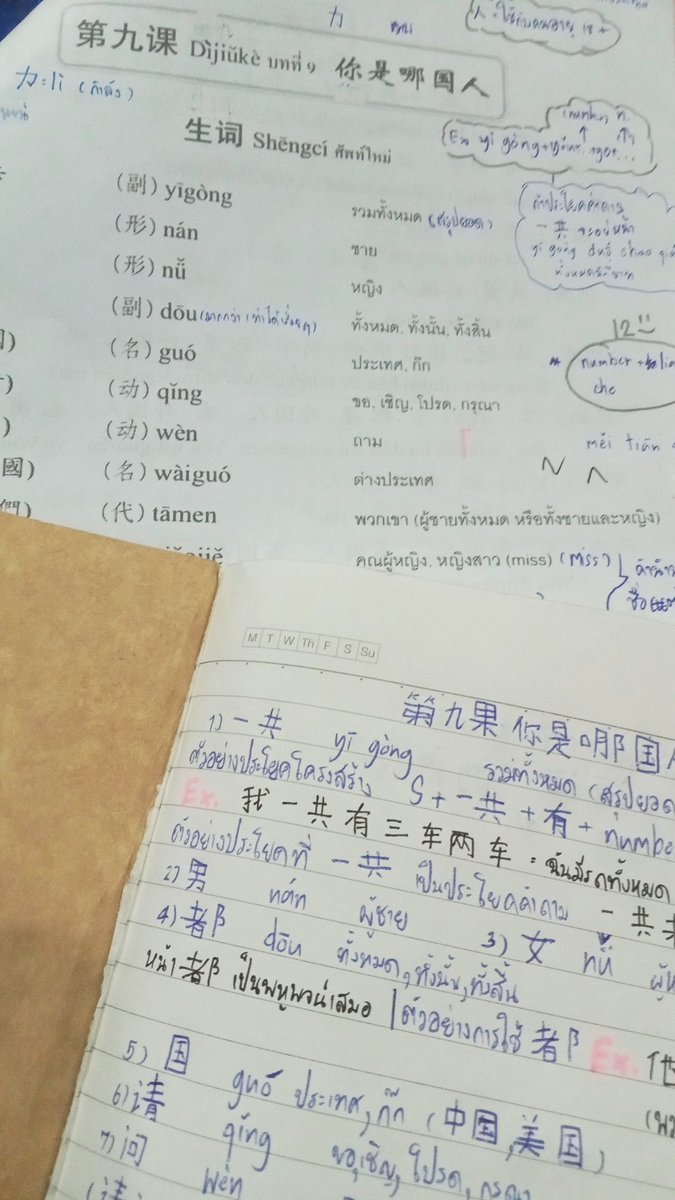 力
第九课 Dìjiǔkè บทที่ ๑ 你是哪国人
力:lì (กำลัง)
生词 Shēngcí ศัพท์ใหม่
(副) yīgòng รวมทั้งหมด (สรุปยอด)
(形) nán ชาย
(形) nǚ หญิง
(副) dōu ทั้งหมด, ทั้งนั้น, ทั้งสิ้น
(名) guó ประเทศ, ก๊ก
(动) qǐng ขอ, เชิญ, โปรด, กรุณา
(动) wèn ถาม
國) (名) wàiguó ต่างประเทศ
們) (代) tāmen พวกเขา (ผู้ชายทั้งหมด หรือทั้งชายและหญิง)
คุณผู้หญิง, หญิงสาว (miss) (miss)
number n.
Ex yī gòng
一共
yī gòng duō shao
12
number
che
měi tiān
M T W Th F S Su
第九果 你是哪国
1) 一共 yī gòng รวมทั้งหมด (สรุปยอด
ตัวอย่างประโยคโครงสร้าง S + 一共 + 有 + numbe
Ex. 我一共有三车两车 = ฉันมีรถทั้งหมด
ตัวอย่างประโยคที่ 一共 เป็นประโยคคำถาม 一共
2) 男 nán ผู้ชาย 3) 女 nǚ
4) 都 dōu ทั้งหมด, ทั้งนั้น, ทั้งสิ้น
หน้า 都 เป็นพหูพจน์เสมอ | ตัวอย่างการใช้ 都 Ex.
5) 国 guó ประเทศ, ก๊ก (中国, 美国)
6) 请 qǐng ขอ, เชิญ, โปรด, กรุณา
7) 问 wèn
(请